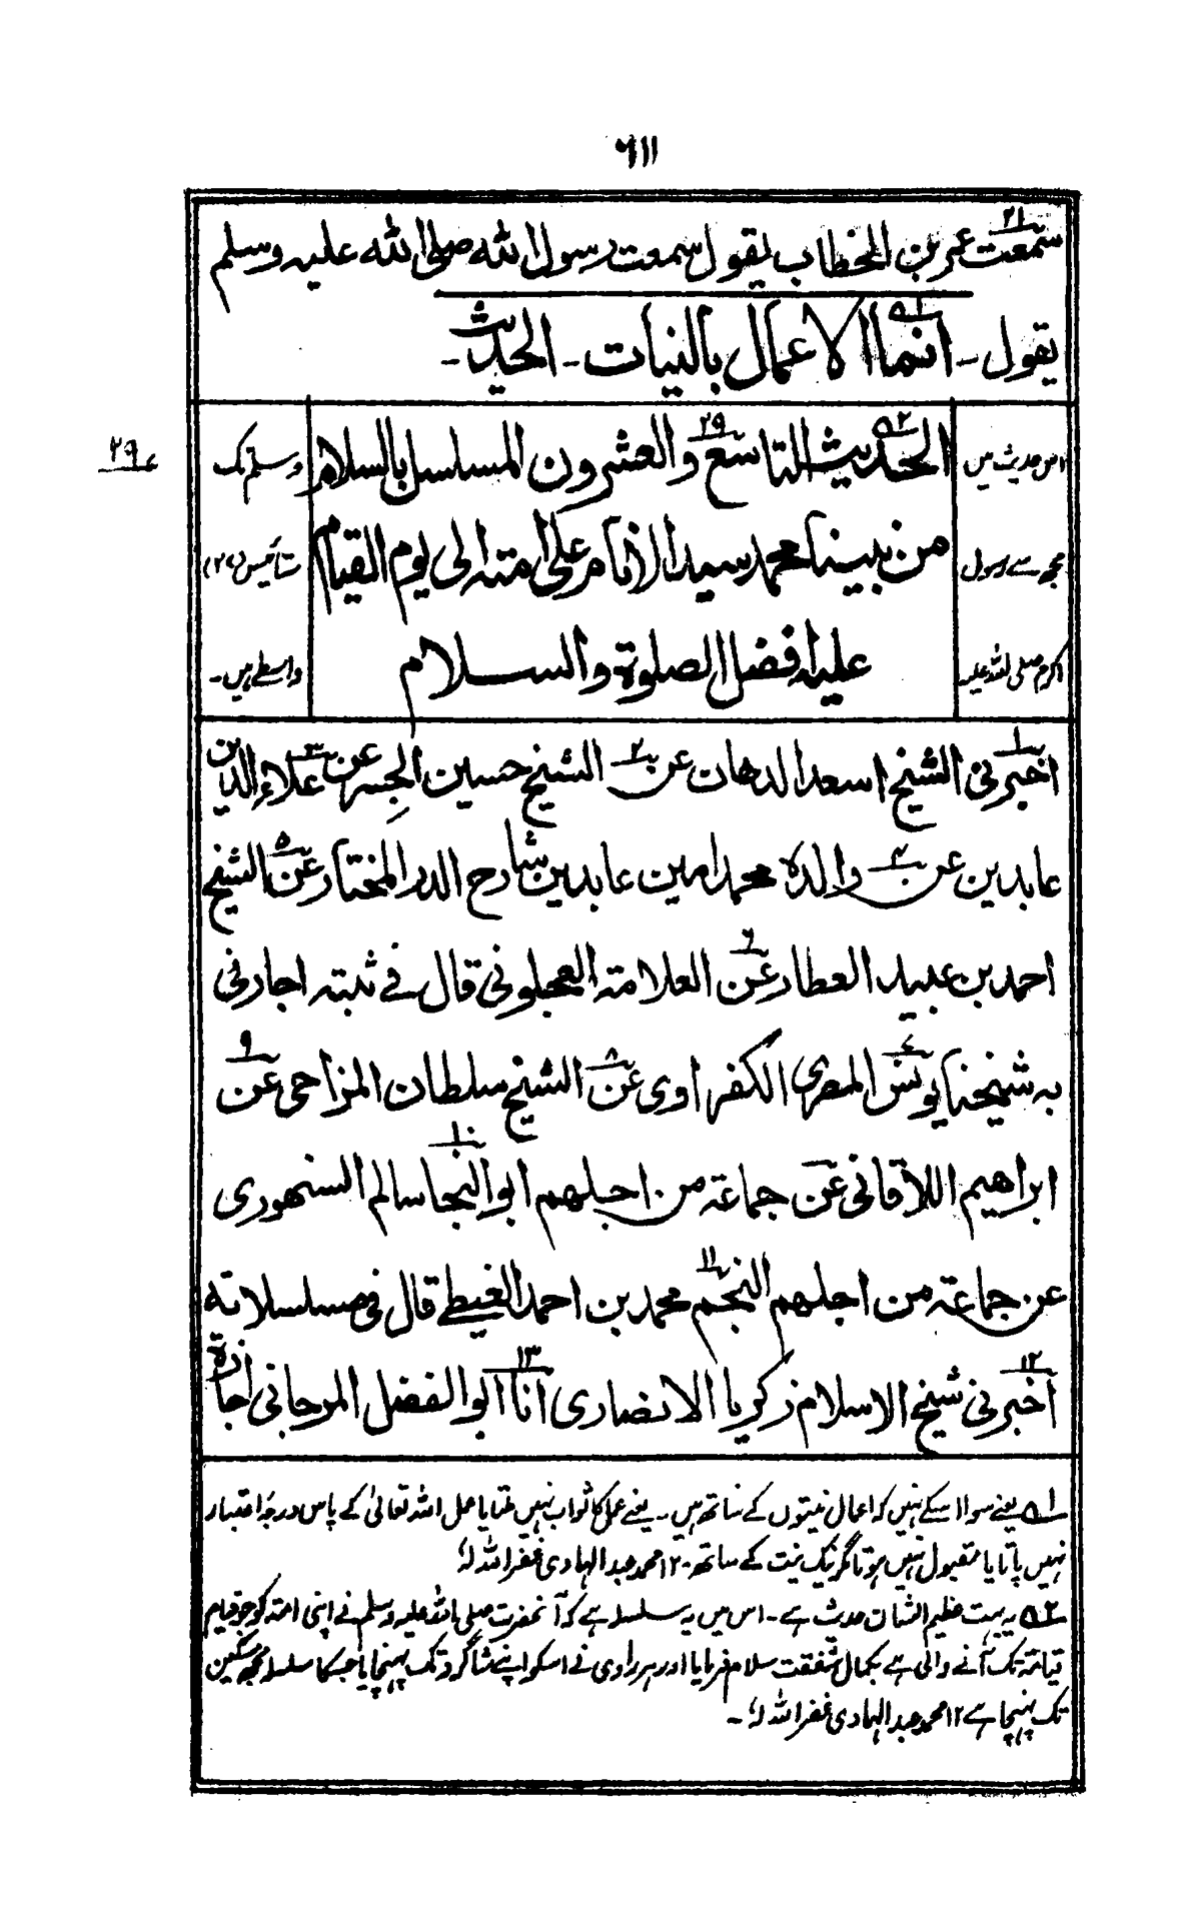 ۶۱۱
سمعت عمر بن الخطاب یقول سمعت رسول الله صلی الله علیہ وسلم
یقول ـ انما الاعمال بالنیات ـ الحدیث ـ
الحدیث التاسع والعشرون المسلسل بالسلام
من نبینا محمد سید الانام علی امتہ الی یوم القیام
علیہ افضل الصلوة والسلام
اس حدیث میں
مجھ سے رسول
اکرم صلی اللہ علیہ
وسلم تک
ستائیس (۲۷)
واسطے ہیں۔
۲۹
اخبرنی الشیخ اسعد الدهان عن الشیخ حسین الجِسر عن علاء الدین
عابدین عن والده محمد امین عابدین شارح الدر المختار عن الشیخ
احمد بن عبید العطار عن العلامۃ العجلونی قال فی ثبتہ اجازنی
به شیخنا یونس المصری الکفراوی عن الشیخ سلطان المزاحی عن
ابراهیم اللاقانی عن جماعۃ من اجلهم ابو النجا سالم السنهوری
عن جماعۃ من اجلهم النجم محمد بن احمد الغیطی قال فی مسلسلاته
اخبرنی شیخ الاسلام زکریا الانصاری انا ابو الفضل المرجانی اجازة
۱ یعنے سوا اسکے نہیں کہ اعمال نیتوں کے ساتھ ہیں۔ یعنے عمل کا ثواب نہیں ملتا یا عمل اللہ تعالیٰ کے پاس درجۂ اعتبار
نہیں پاتا یا مقبول نہیں ہوتا مگر نیک نیت کے ساتھ۔ ۱۲ محمد عبد الہادی غفر اللہ لہٗ
۲ یہ بہت عظیم الشان حدیث ہے۔ اس میں یہ سلسلہ ہے کہ آنحضرت صلی اللہ علیہ وسلم نے اپنی امتہ کو جو قیام
قیامتہ تک آنے والی ہے بکمال شفقت سلام فرمایا اور ہر راوی نے اسکو اپنے شاگرد تک پہنچایا جسکا سلسلہ مجھ مسکین
تک پہنچا ہے ۱۲ محمد عبد الہادی غفر اللہ لہٗ۔